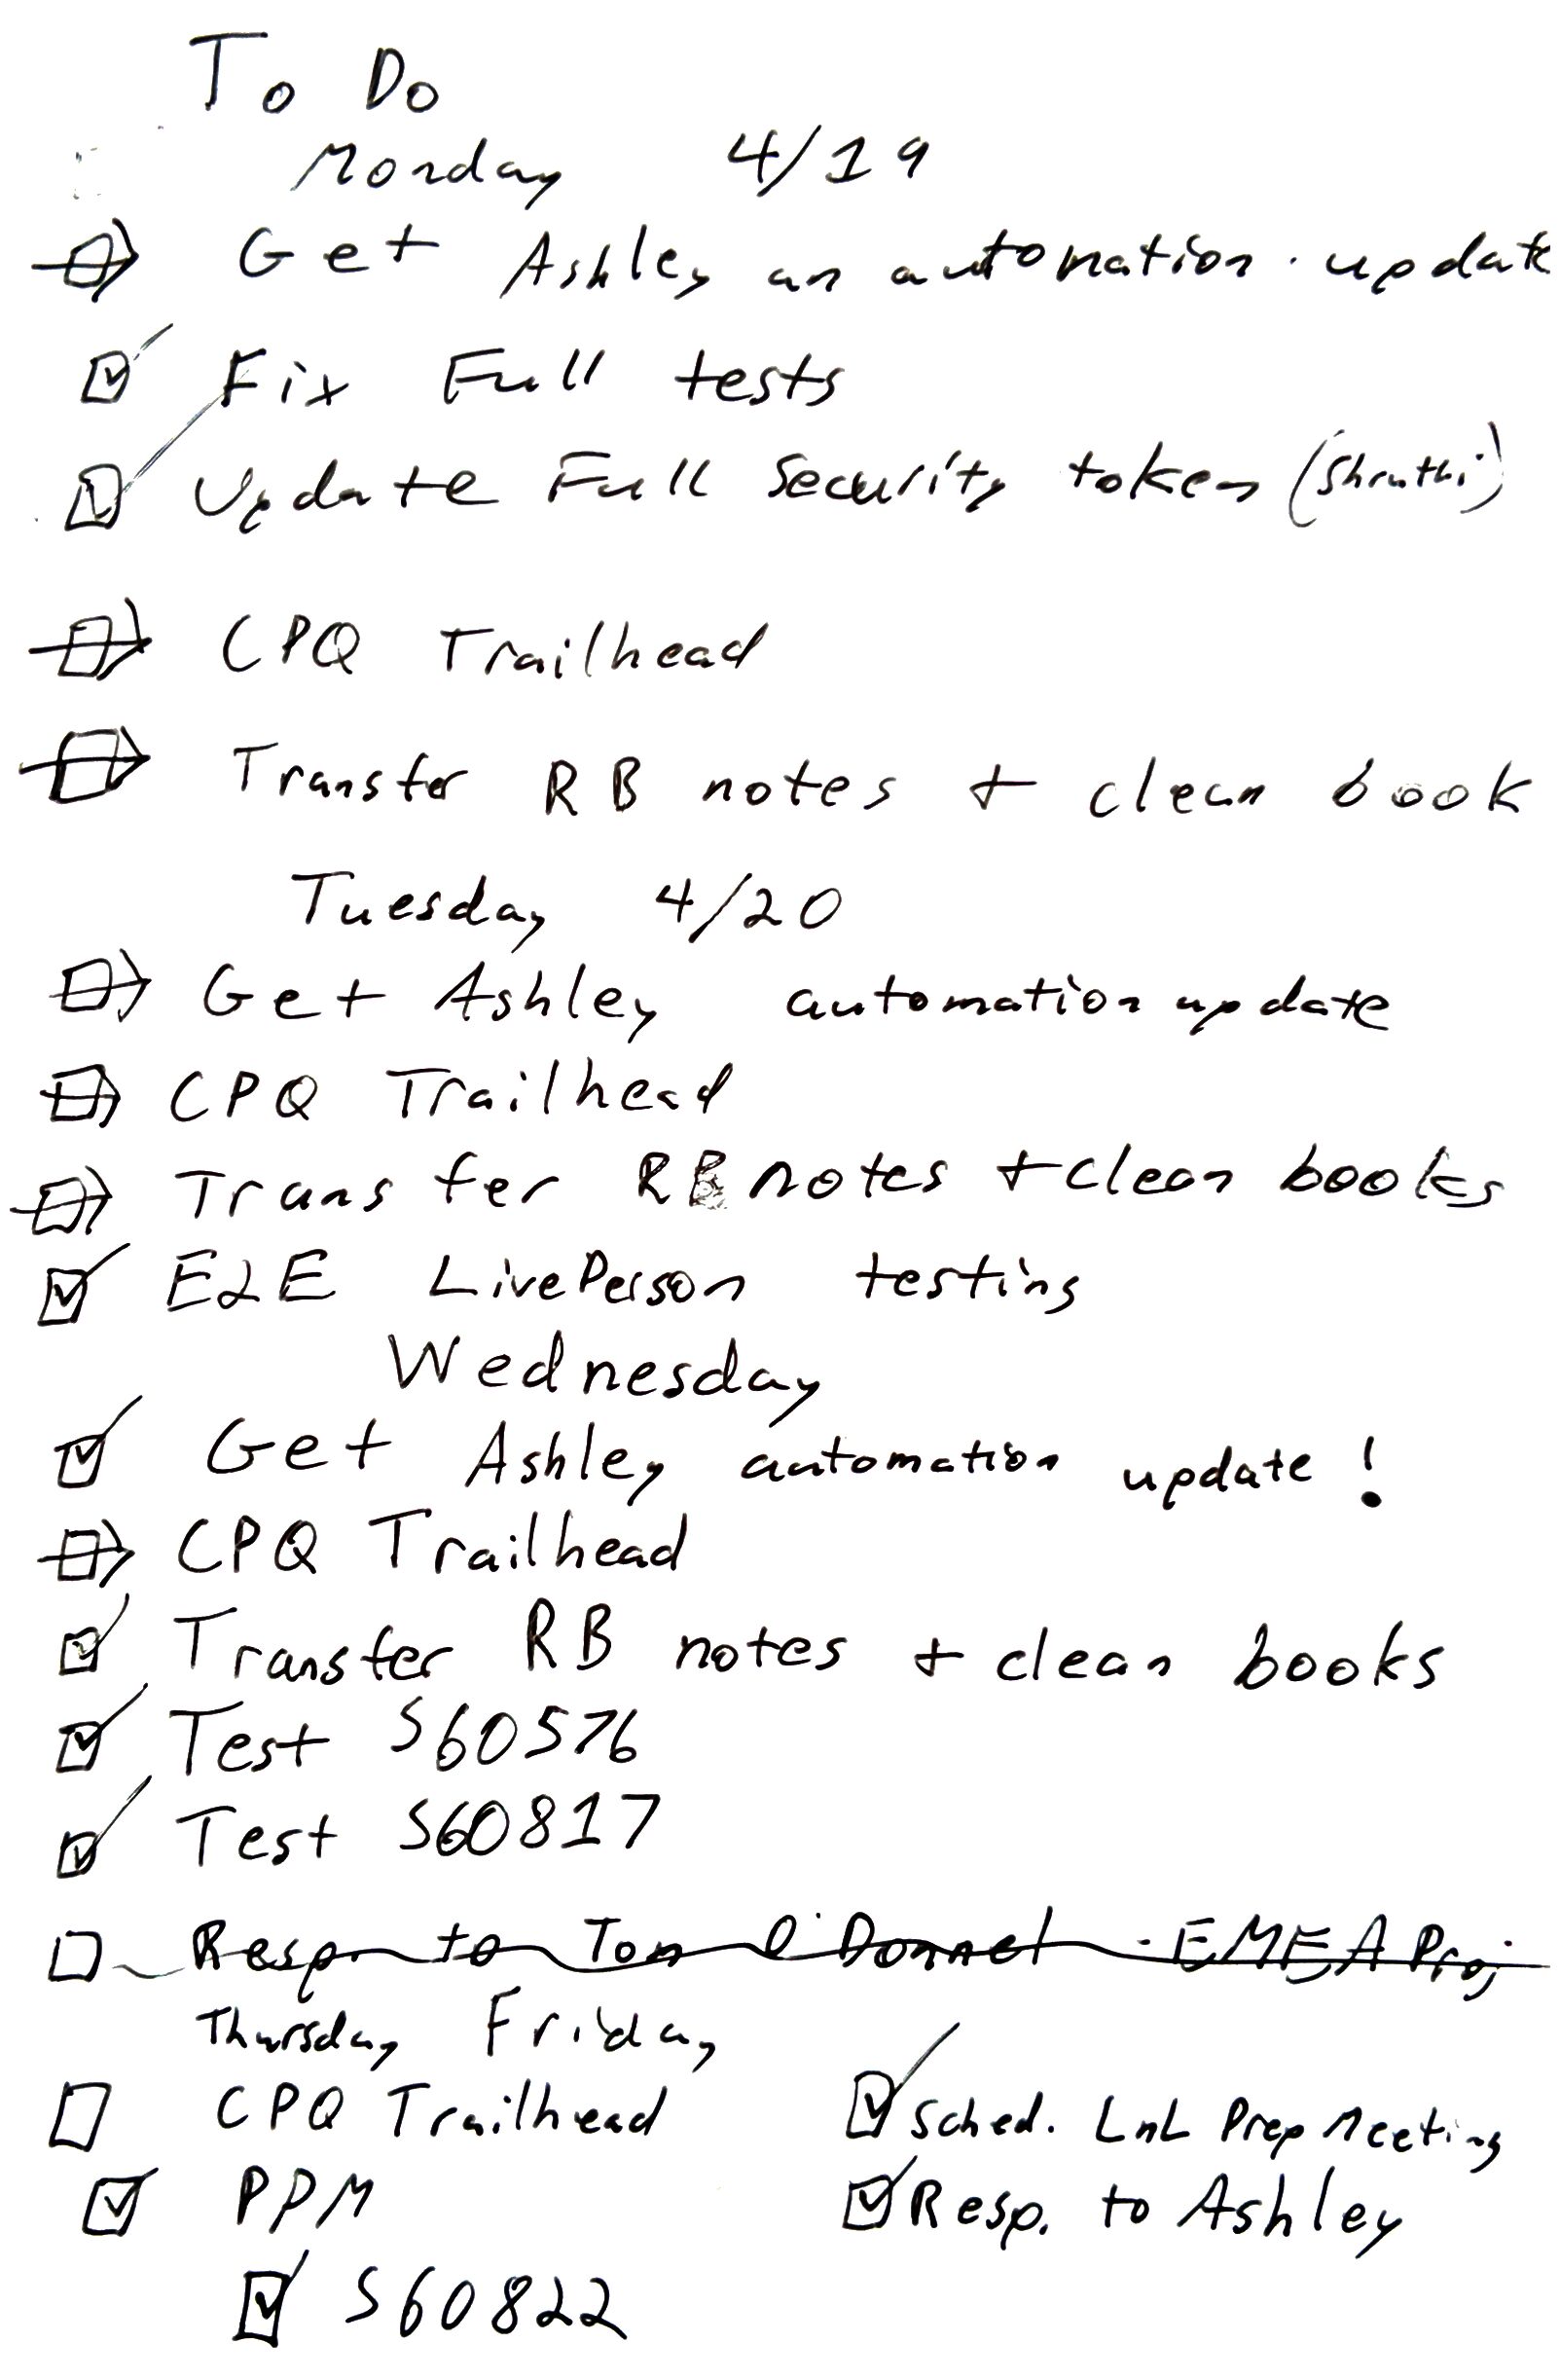 To Do
Monday 4/19
Get Ashley an automation update
Fix Full tests
Update Full Security token (Shruthi)
CPQ Trailhead
Transfer RB notes + clean book
Tuesday 4/20
Get Ashley automation update
CPQ Trailhead
Transfer RB notes + clean books
E2E LivePerson testing
Wednesday
Get Ashley automation update!
CPQ Trailhead
Transfer RB notes + clean books
Test S60576
Test S60817
Resp. to Tom O'Donnel - EMEA Proj
Thursday Friday
CPQ Trailhead
PPM
S60822
Sched. LnL Prep Meeting
Resp. to Ashley